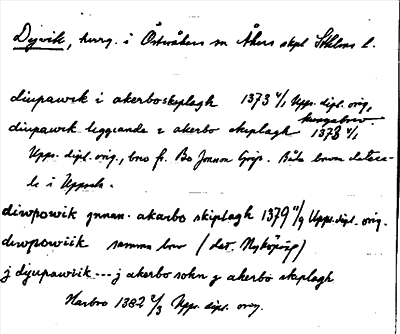 Dyvik, herrg. i Östuråkers sn Åkers skpl Sthlms l.
diupawik i akerboskiplagh 1373 4/1 Upps. dipl. orig.
diupawik liggiande i akerbo skiplagh 1373 4/1
Upps. dipl. orig., brev fr. Bo Jonson Grip. Båda breven datera-
de i Uppsala.
diwpowik innan akarbo skiplagh 1379 11/9 Upps. dipl. orig.
diwpowiik samma brev (dat. Nyköping)
j dyupawiik --- j akerbo sokn j akerbo skiplagh
Harbro 1382 4/3 Upps. dipl. orig.